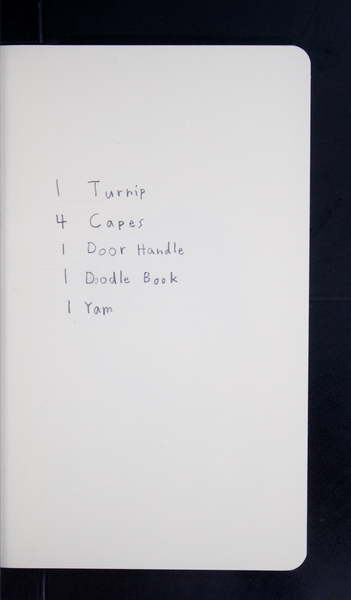 1 Turnip
4 Capes
1 Door Handle
1 Doodle Book
1 Yam